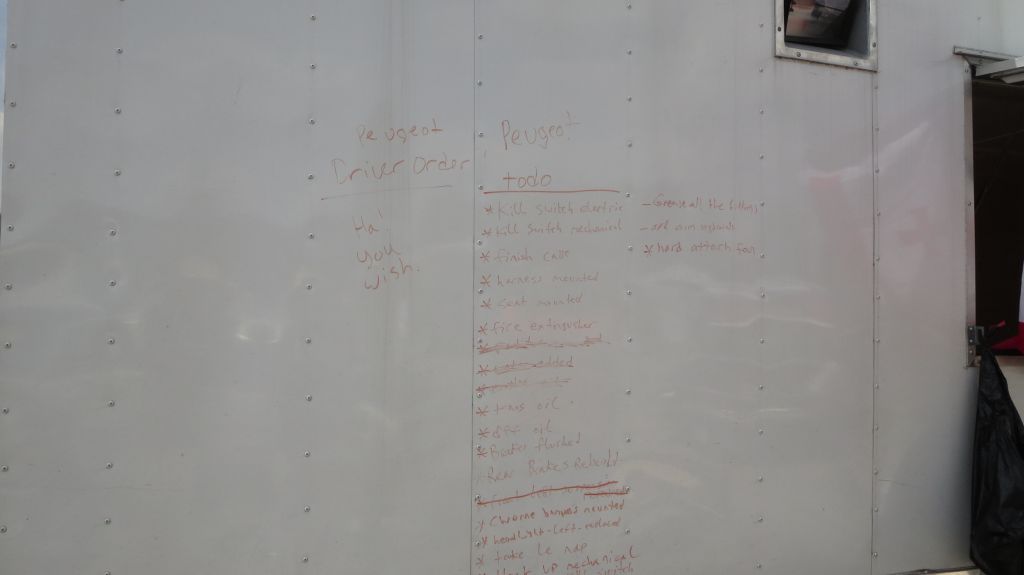 Peugeot
Driver Order
Ha!
you
wish.
Peugeot
todo
* Kill switch electric
* Kill switch mechanical
* finish cage
* harness mounted
* seat mounted
* fire extingusher
* water added
* trans oil
* diff oil
* Brakes flushed
Rear Brakes Rebuild
* Chrome bumpers mounted
* headlight-left-replaced
* take le nap
* Hook up mechanical
switch
- Grease all the fittings
* hard attach fan